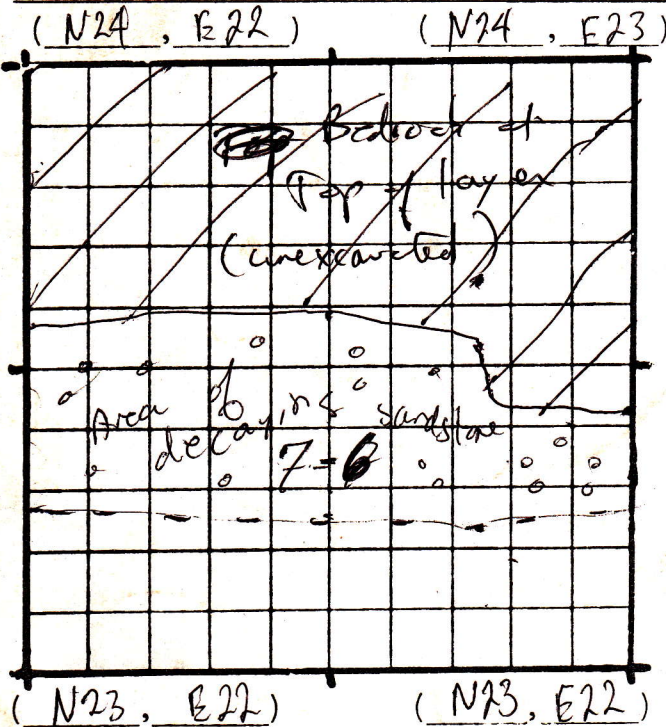 ( N24 , E22 ) ( N24 , E23 )
Bedrock at
Top of layer
(unexcavated)
Area of
decaying sandstone
7-6
( N23, E22 ) ( N23, E22 )